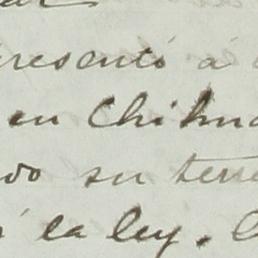 presentó á
en Chihua
vo su terre
la ley.